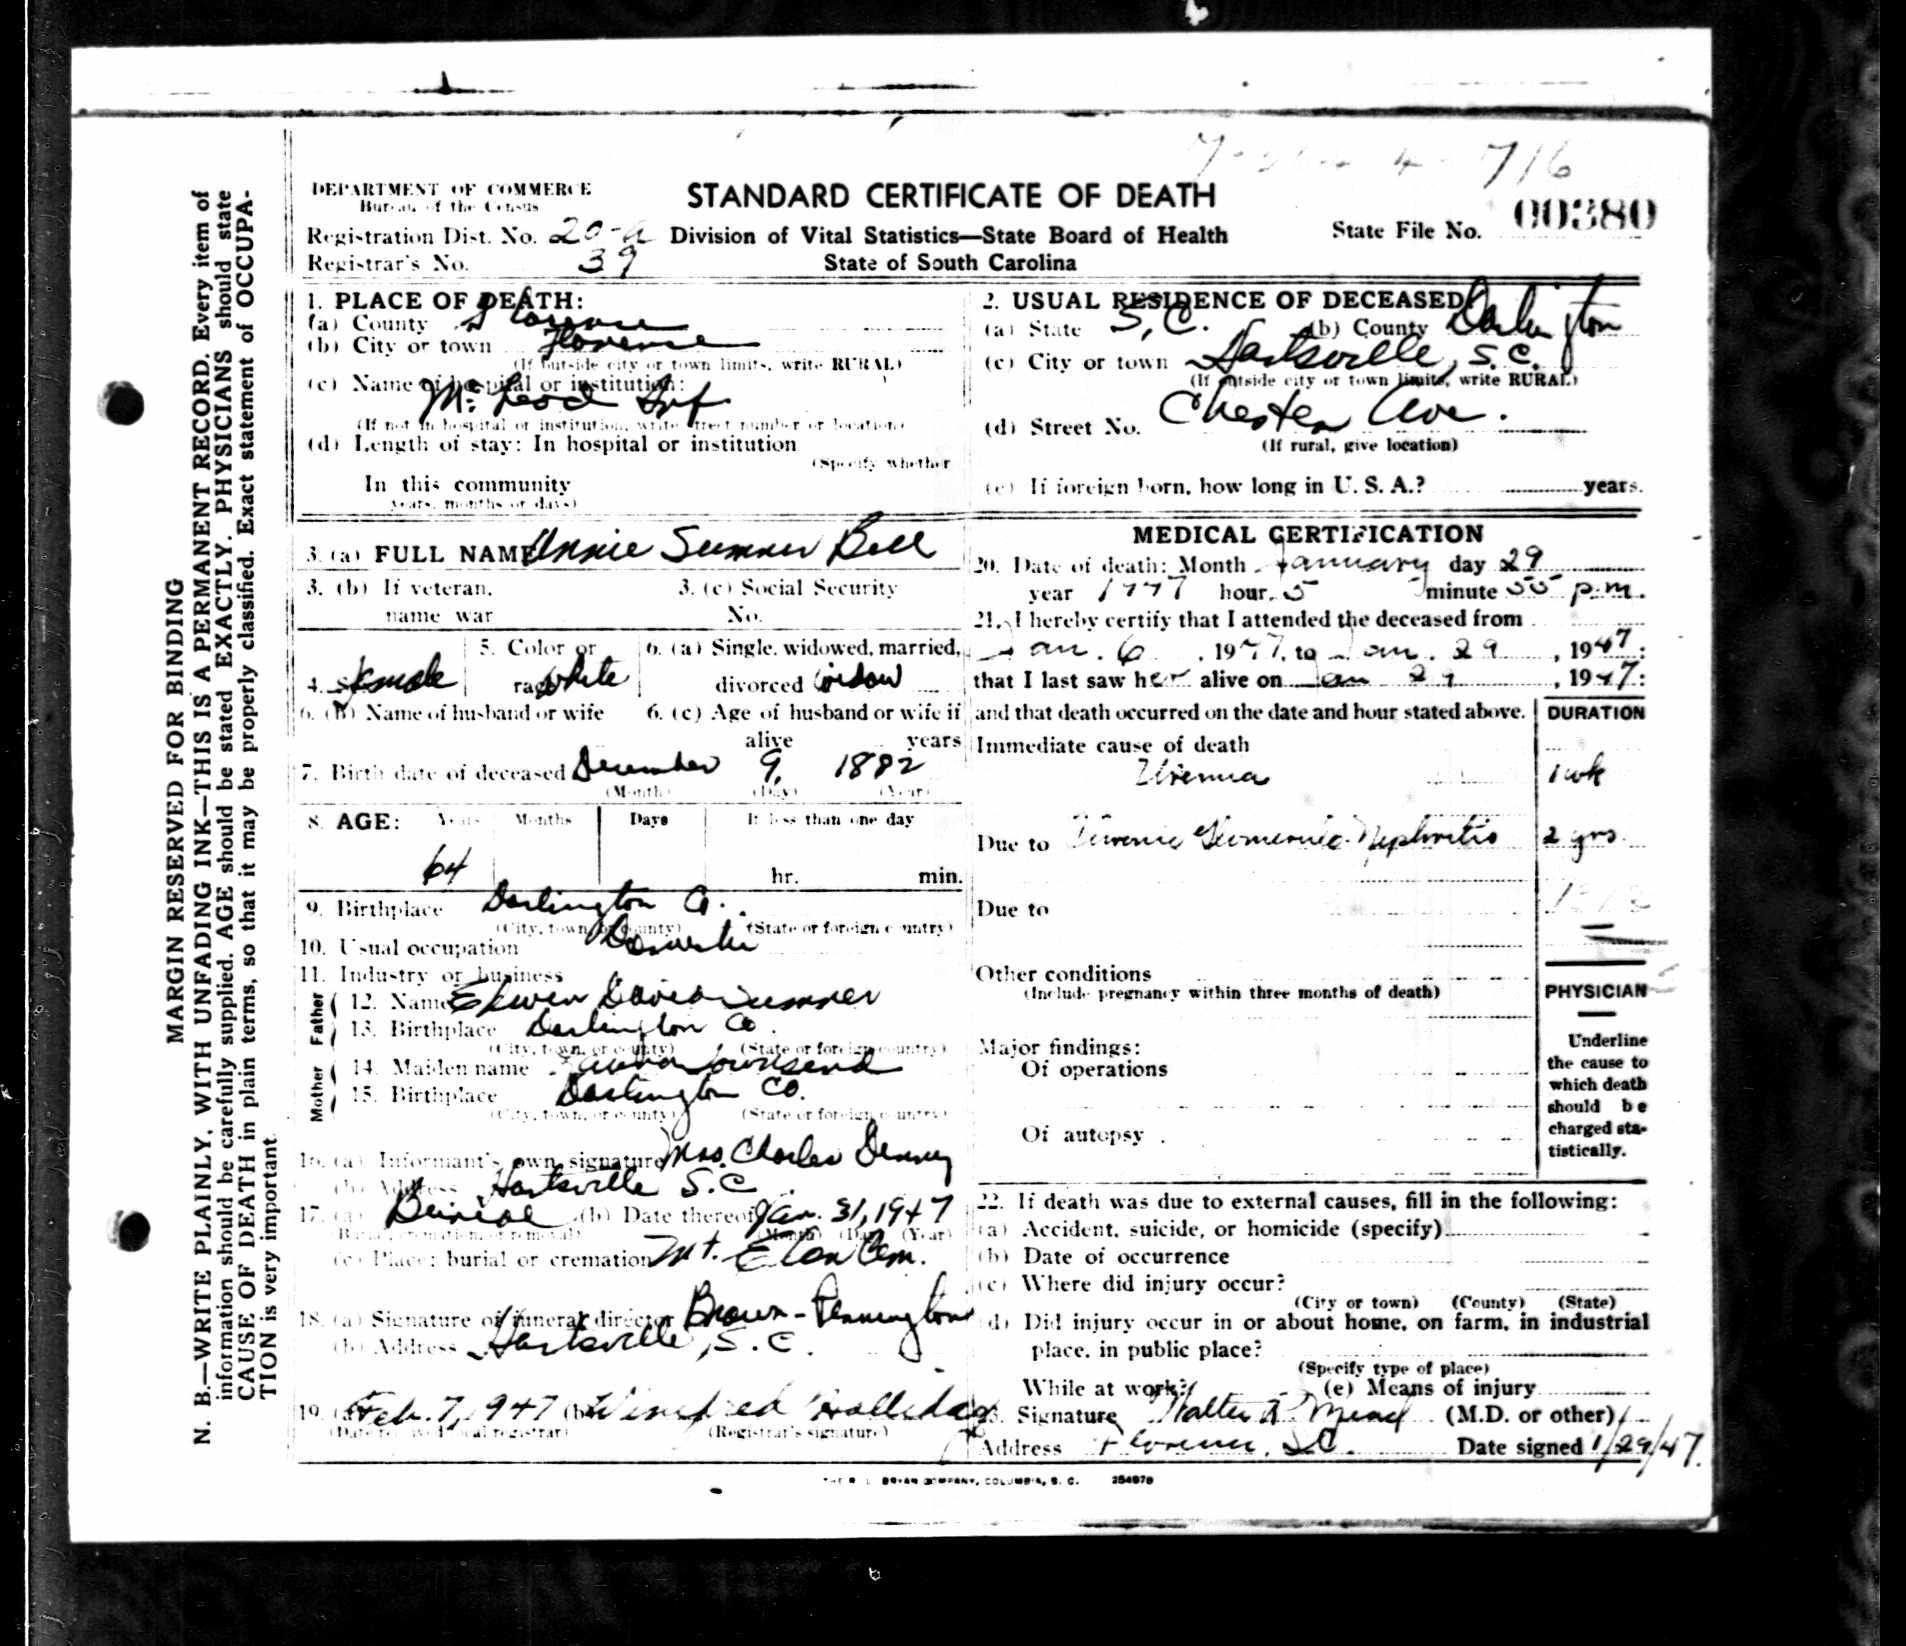 716
DEPARTMENT OF COMMERCE
Bureau of the Census
STANDARD CERTIFICATE OF DEATH
State File No. 00380
Registration Dist. No. 20-A
Division of Vital Statistics—State Board of Health
Registrar's No. 39
State of South Carolina
MARGIN RESERVED FOR BINDING
N. B.—WRITE PLAINLY, WITH UNFADING INK—THIS IS A PERMANENT RECORD. Every item of
information should be carefully supplied. AGE should be stated EXACTLY. PHYSICIANS should state
CAUSE OF DEATH in plain terms, so that it may be properly classified. Exact statement of OCCUPA-
TION is very important
1. PLACE OF DEATH:
(a) County Florence
(b) City or town Florence
(If outside city or town limits, write RURAL)
(c) Name of hospital or institution:
Mc Leod Inf
(If not in hospital or institution, write street number or location)
(d) Length of stay: In hospital or institution
(Specify whether
In this community
years, months or days)
2. USUAL RESIDENCE OF DECEASED
(a) State S.C. (b) County Darlington
(c) City or town Hartsville, S.C.
(If outside city or town limits, write RURAL)
(d) Street No. Chester Ave.
(If rural, give location)
(e) If foreign born, how long in U. S. A.? years.
3. (a) FULL NAME Annie Sumner Bell
3. (b) If veteran, name war
3. (c) Social Security No.
4. Sex female
5. Color or race white
6. (a) Single, widowed, married, divorced widow
6. (b) Name of husband or wife
6. (c) Age of husband or wife if alive years
7. Birth date of deceased December 9, 1882
(Month) (Day) (Year)
8. AGE: Years Months Days If less than one day
64 hr. min.
9. Birthplace Darlington Co.
(City, town, or county) (State or foreign country)
10. Usual occupation Domestic
11. Industry or business
Father
12. Name Edwin Sumner
13. Birthplace Darlington Co.
(City, town, or county) (State or foreign country)
Mother
14. Maiden name Townsend
15. Birthplace Darlington Co.
(City, town, or county) (State or foreign country)
16. (a) Informant's own signature Mrs. Charles Denney
(b) Address Hartsville S.C.
17. (a) Burial (b) Date thereof Jan. 31, 1947
(Burial, cremation or removal) (Month) (Day) (Year)
(c) Place: burial or cremation Mt. Elon Cem.
18. (a) Signature of funeral director Brown-Pennington
(b) Address Hartsville, S.C.
19. (a) Feb. 7, 1947 (b) Winifred Holliday
(Date received local registrar) (Registrar's signature)
MEDICAL CERTIFICATION
20. Date of death: Month January day 29
year 1947 hour 5 minute 55 p.m.
21. I hereby certify that I attended the deceased from
Jan. 6, 1947, to Jan. 29, 1947:
that I last saw her alive on Jan 29, 1947:
and that death occurred on the date and hour stated above.
DURATION
Immediate cause of death
Uremia 1 wk
Due to Chronic Glomerulo-Nephritis 2 yrs.
Due to
Other conditions
(Include pregnancy within three months of death)
PHYSICIAN
Major findings:
Of operations
Of autopsy
Underline
the cause to
which death
should be
charged sta-
tistically.
22. If death was due to external causes, fill in the following:
(a) Accident, suicide, or homicide (specify)
(b) Date of occurrence
(c) Where did injury occur?
(City or town) (County) (State)
(d) Did injury occur in or about home, on farm, in industrial
place, in public place?
(Specify type of place)
While at work? (e) Means of injury
23. Signature Walter R. Mead (M.D. or other)
Address Florence, S.C. Date signed 1/29/47.
THE R. L. BRYAN COMPANY, COLUMBIA, S. C. 254978